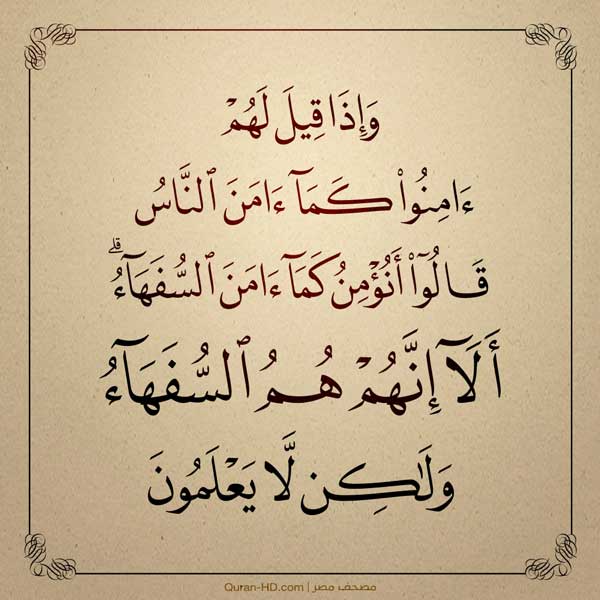 وَإِذَا قِيلَ لَهُمْ
ءَامِنُوا۟ كَمَآ ءَامَنَ ٱلنَّاسُ
قَالُوٓا۟ أَنُؤْمِنُ كَمَآ ءَامَنَ ٱلسُّفَهَآءُ ۗ
أَلَآ إِنَّهُمْ هُمُ ٱلسُّفَهَآءُ
وَلَـٰكِن لَّا يَعْلَمُونَ
Quran-HD.com | مصحف مصر